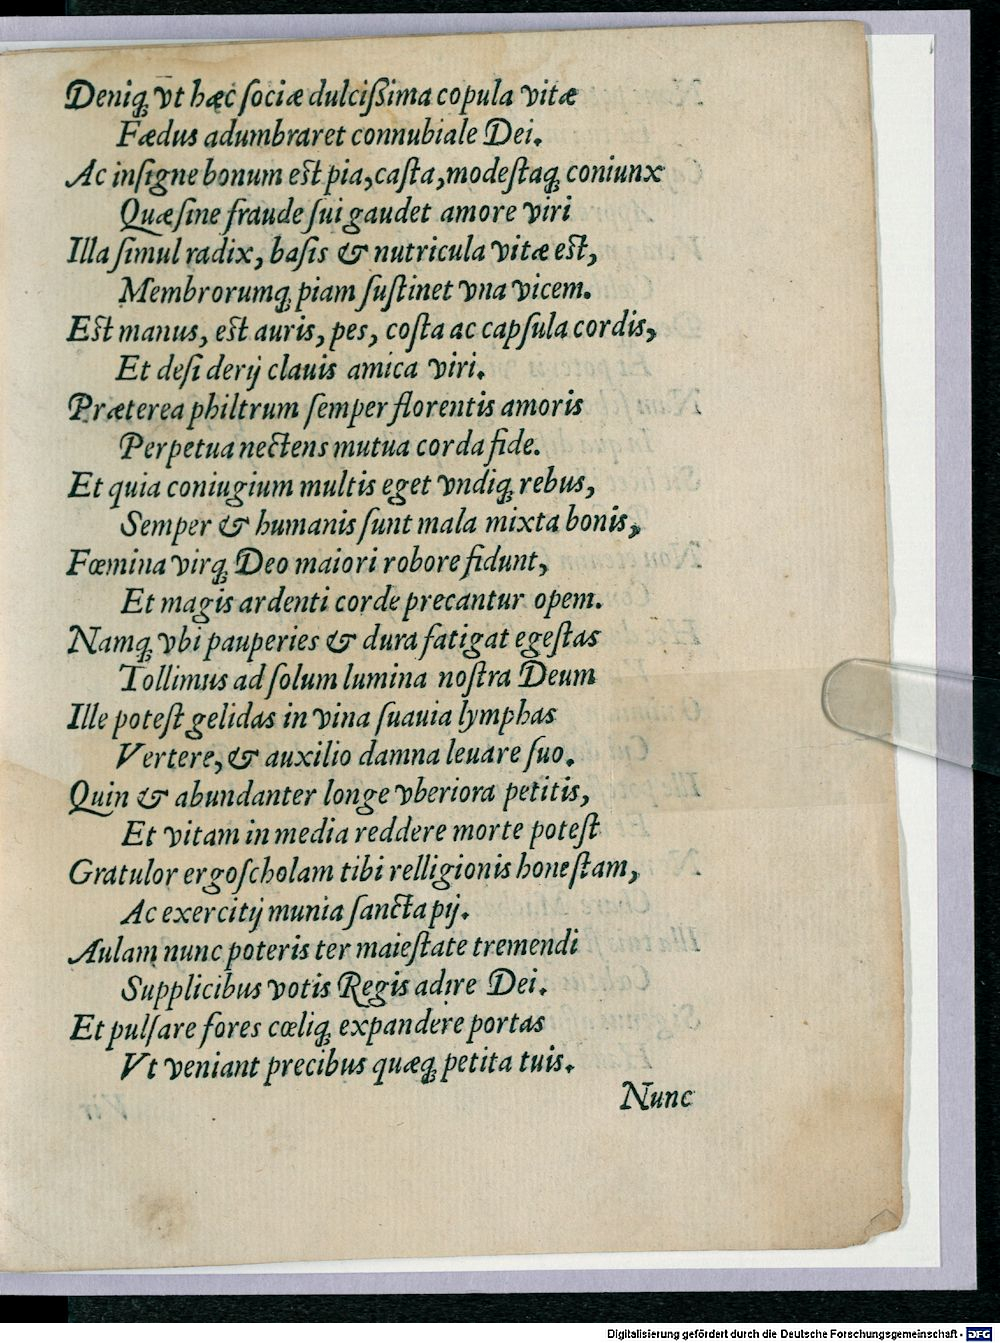 Deniqꝫ vt hęc ſociæ dulciſsima copula vitæ
Fædus adumbraret connubiale Dei.
Ac inſigne bonum est pia, caſta, modeſtaqꝫ coniunx
Quæ ſine fraude ſui gaudet amore viri
Illa ſimul radix, baſis & nutricula vitæ est,
Membrorumqꝫ piam ſuſtinet vna vicem.
Est manus, est auris, pes, coſta ac capſula cordis,
Et deſi derij clauis amica viri.
Præterea philtrum ſemper florentis amoris
Perpetua nectens mutua corda fide.
Et quia coniugium multis eget vndiqꝫ rebus,
Semper & humanis ſunt mala mixta bonis,
Fœmina virqꝫ Deo maiori robore fidunt,
Et magis ardenti corde precantur opem.
Namqꝫ vbi pauperies & dura fatigat egeſtas
Tollimus ad ſolum lumina noſtra Deum
Ille poteſt gelidas in vina ſuauia lymphas
Vertere, & auxilio damna leuare ſuo.
Quin & abundanter longe vberiora petitis,
Et vitam in media reddere morte poteſt
Gratulor ergo ſcholam tibi relligionis honeſtam,
Ac exercitij munia ſancta pij.
Aulam nunc poteris ter maieſtate tremendi
Supplicibus votis Regis adire Dei.
Et pulſare fores cœliqꝫ expandere portas
Vt veniant precibus quæqꝫ petita tuis.
Nunc
Digitalisierung gefördert durch die Deutsche Forschungsgemeinschaft - DFG